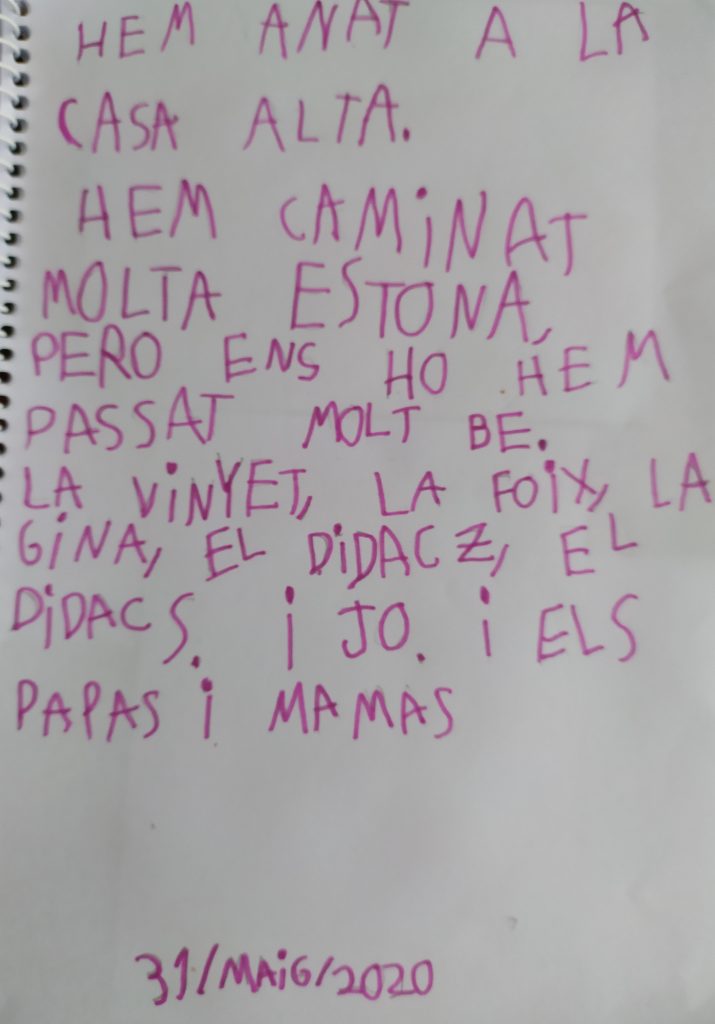 HEM ANAT A LA
CASA ALTA.
HEM CAMiNAT
MOLTA ESTONA,
PERO ENS HO HEM
PASSAT MOLT BE.
LA ViNYET, LA FOiX, LA
GiNA, EL DiDAC Z, EL
DiDAC S. i JO. i ELS
PAPAS i MAMAS
31/MAiG/2020